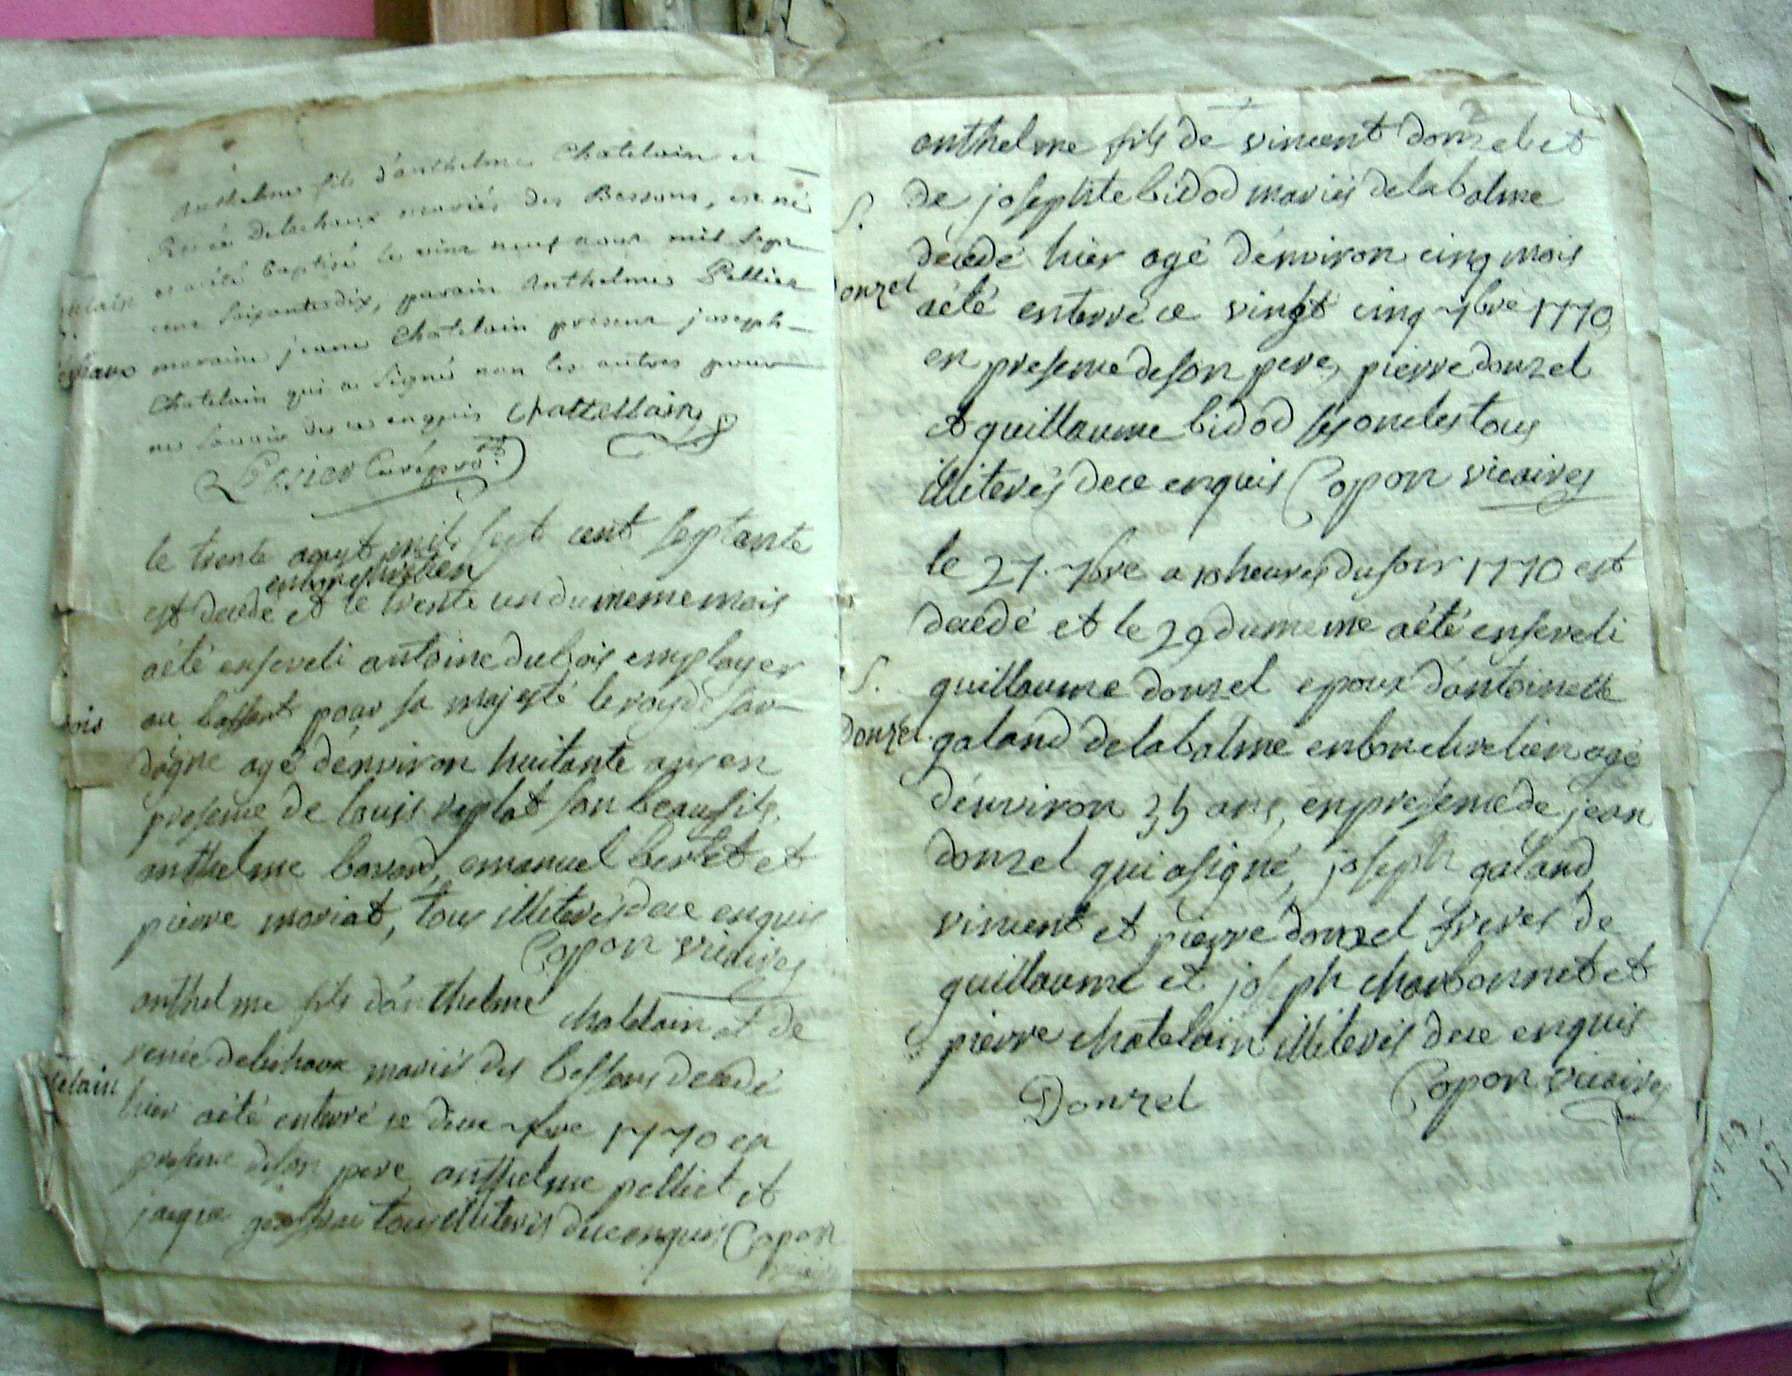 Anthelme fils d'anthelme Chatelain et
Renée delachaux mariés des Bessons, est né
et a été baptisé le vint neuf aout mil sept
cent soixante dix, parain Anthelme Pellier
maraine jeane Chatelain présent joseph
Chatelain qui a signé non les autres pour
ne savoir de ce enquis Chattellain
Curé
le trente aoust mil sept cent septante
en bon chretien
est decedé et le trente un du meme mois
a été enseveli antoine dubois employer
au pour sa majesté le roy de sar
dagne agé denviron huitante ans en
presence de louis replat son beaufils,
anthelme bavard, emanuel bertet et
pierre moriat, tous illiterés de ce enquis
Copon vicaires
anthelme fils d'anthelme chatelain et de
renée delechaux mariés des bessons decedé
hier a été enterré ce deux 7bre 1770 en
presence de son pere anthelme pelliet et
jaque tous illiterés de ce enquis Copon
vicaires
2
anthelme fils de vincent donzel et
de josephte bidod mariés de la balme
S.
decedé hier agé d'environ cinq mois
Donzel
a été enterré ce vingt cinq 7bre 1770,
en presence de son pere, pierre donzel
et guillaume bidod ses oncles tous
illiterés de ce enquis Copon vicaires
le 27. 7bre a 10 heures du soir 1770 est
decedé et le 29 du meme a été enseveli
S.
guillaume donzel epoux d'antoinette
Donzel.
galand de la balme en bon chretien agé
d'environ 35 ans, en presence de jean
donzel qui a signé, joseph galand,
vincent et pierre donzel freres de
guillaume et joseph charbonnet et
pierre chatelain illiterés de ce enquis
Donzel Copon vicaires